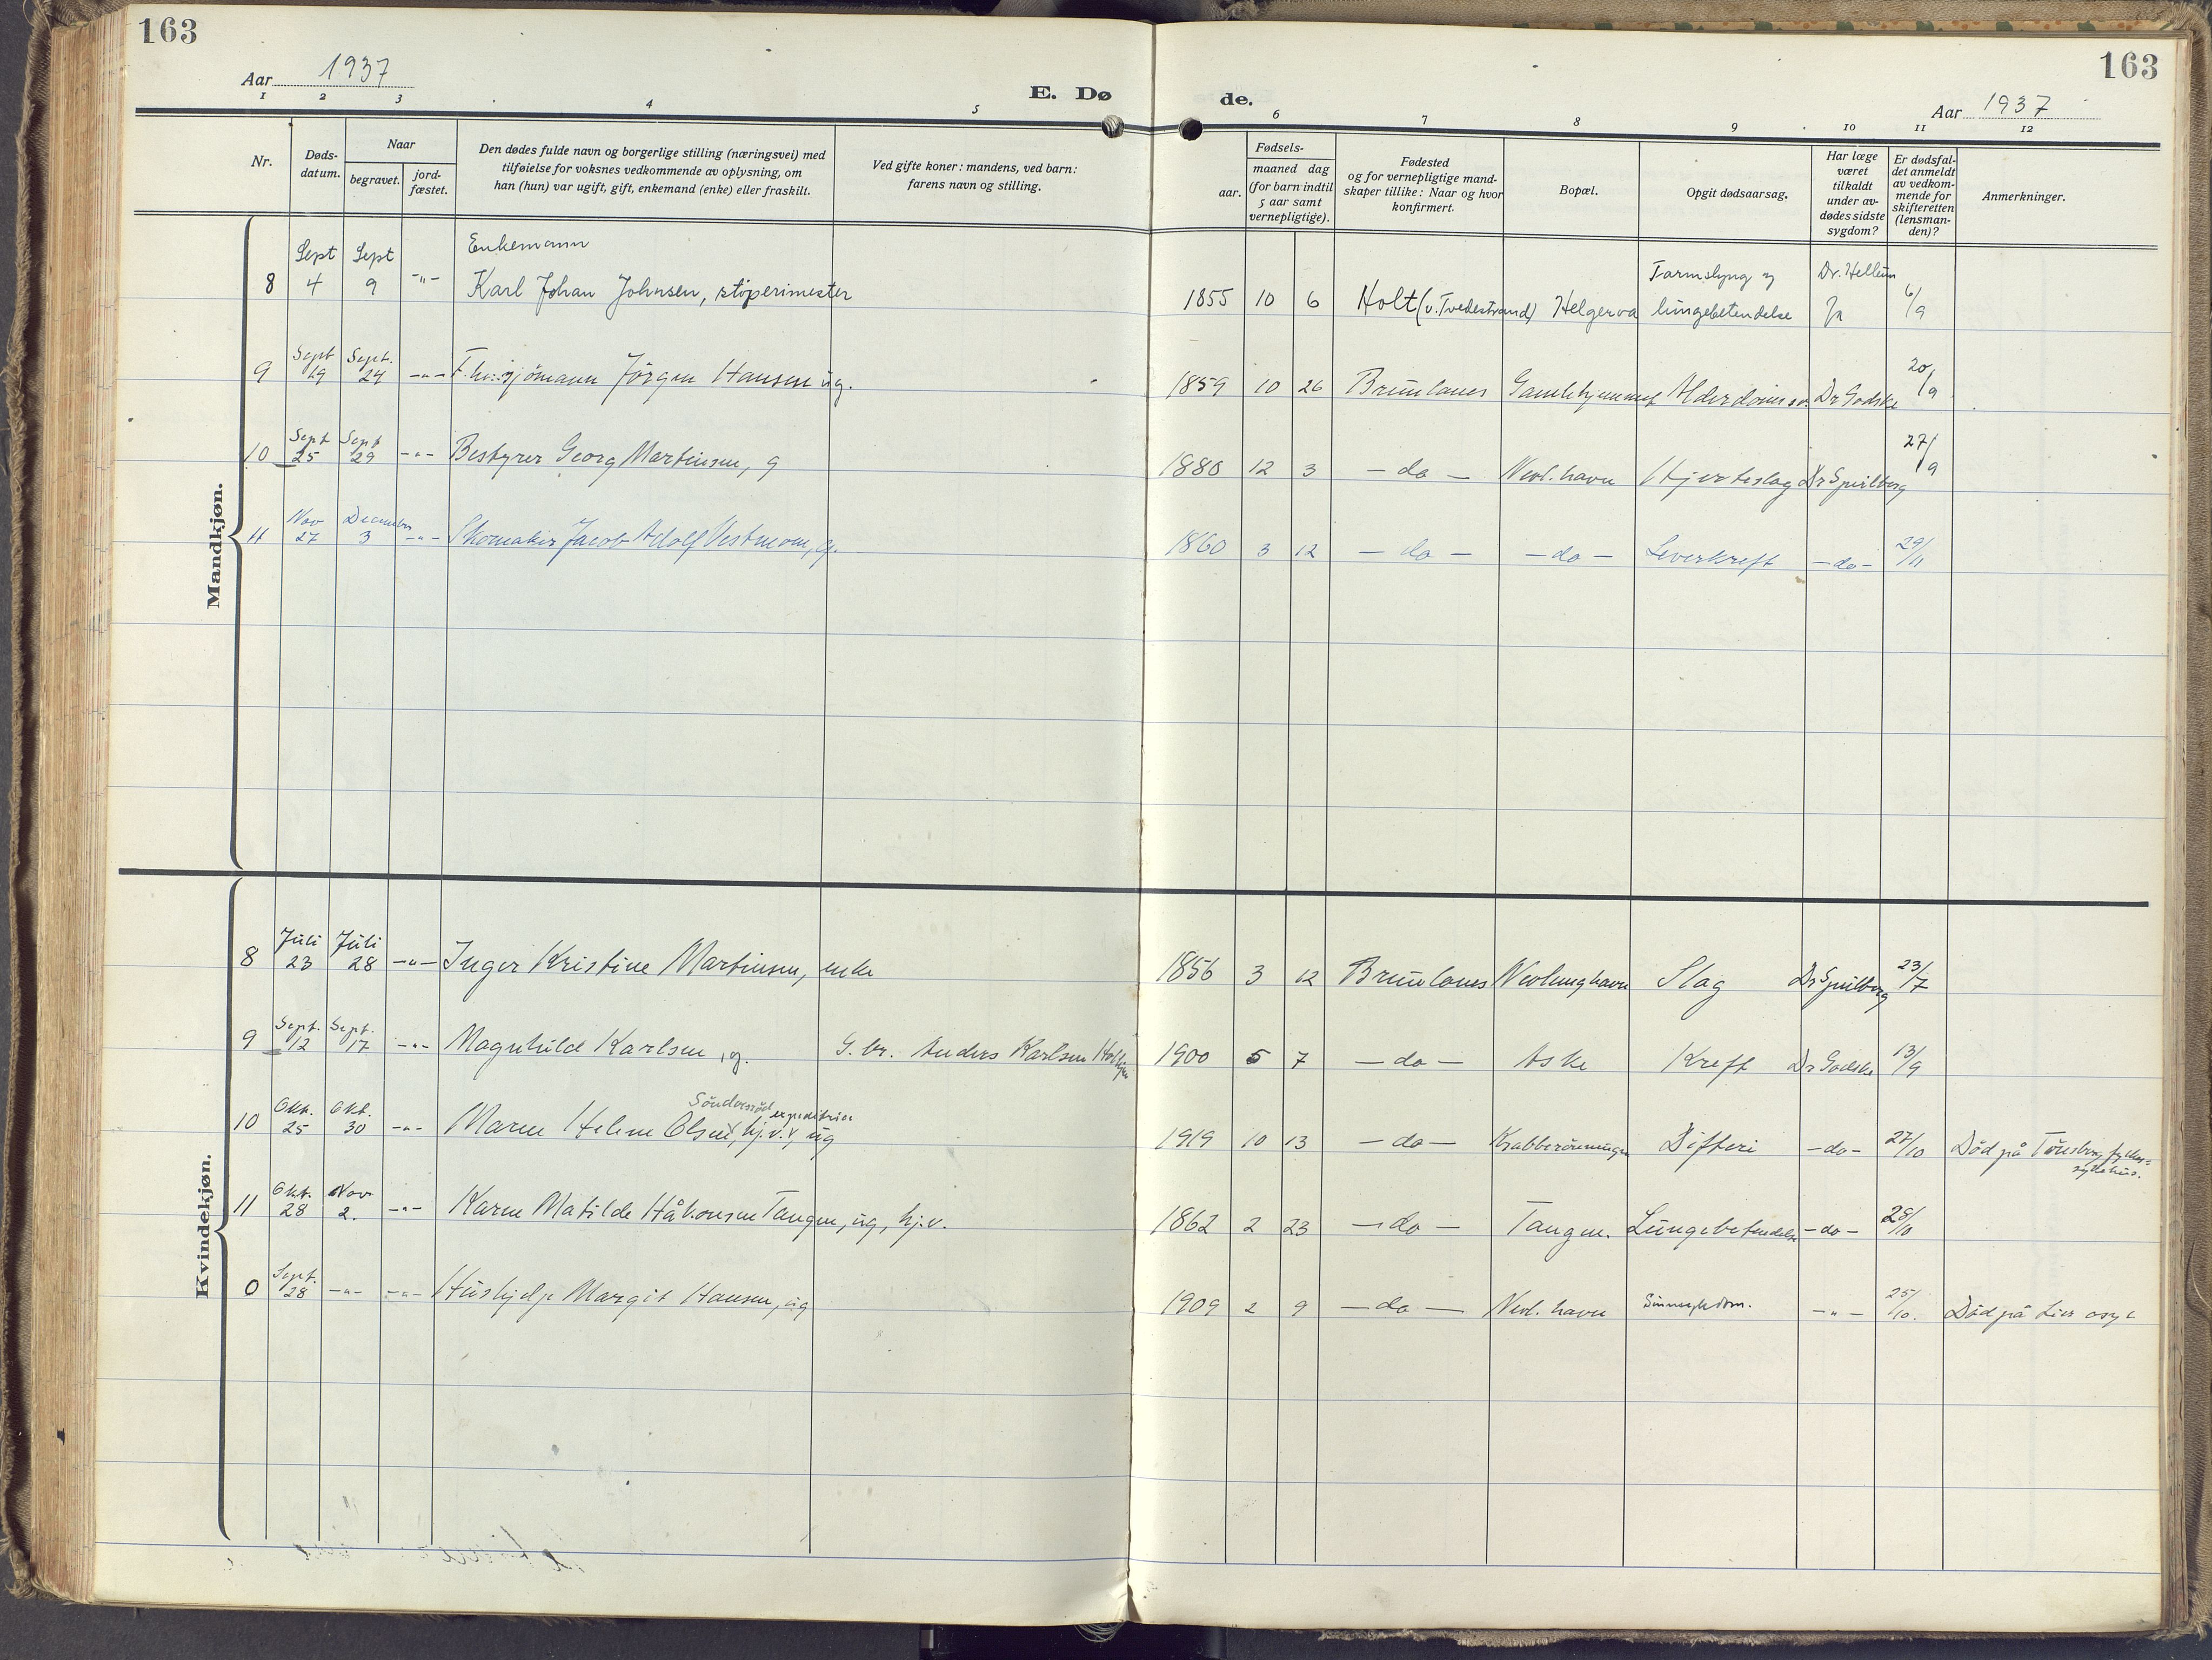 163
163
Aar 1937
E. Dø
de.
Aar 1937
1 2 3 4 5 6 7 8 9 10 11 12
Nr.
Døds-
datum.
Naar
begravet.
jord-
fæstet.
Den dødes fulde navn og borgerlige stilling (næringsvei) med
tilføielse for voksnes vedkommende av oplysning, om
han (hun) var ugift, gift, enkemand (enke) eller fraskilt.
Ved gifte koner: mandens, ved barn:
farens navn og stilling.
Fødsels-
aar.
maaned dag
(for barn indtil
5 aar samt
vernepligtige).
Fødested
og for vernepligtige mand-
skaper tillike: Naar og hvor
konfirmert.
Bopæl.
Opgit dødsaarsag.
Har læge
været
tilkaldt
under av-
dødes sidste
sygdom?
Er dødsfal-
det anmeldt
av vedkom-
mende for
skifteretten
(lensman-
den)?
Anmerkninger.
Mandkjøn.
Sept Sept Enkemann Tarmslyng og Dr. Hellum
8 4 9 -"- Karl Johan Johnsen, støperimester 1855 10 6 Holt (v. Tvedestrand) Helgeroa lungebetendelse Ja 6/9
Sept Sept.
9 19 24 -"- F.hv. sjömann Jörgen Hansen ug. 1859 10 26 Brunlanes Gamlehjemmet Alderdoms Dr Godske 20/9
Sept Sept
10 25 29 -"- Bestyrer Georg Martinsen, g 1880 12 3 - do - Nevl. havn Hjerteslag Dr Spillberg 27/9
Nov December
11 27 3 -"- Skomaker Jacob Adolf Vestmom, g. 1860 3 12 - do - - do - Leverkreft - do - 29/11
Kvindekjøn.
Juli Juli
8 23 28 -"- Inger Kristine Martinsen, enke 1856 3 12 Brunlanes Nevlunghavn Slag Dr Spillberg 23/7
Sept. Sept.
9 12 17 -"- Magnhild Karlsen, g. G. br. Anders Karlsen 1900 5 7 - do - Aske Kreft Dr Godske 13/9
Okt. Okt. Sönderröd expeditrise
10 25 30 -"- Maren Helene Olsen, hj.v.v, ug 1919 10 13 - do - Krabberönningen Difteri - do - 27/10 Död på Tönsberg fylkes-
sykehus.
Okt. Nov.
11 28 2. -"- Karen Matilde Håkonsen Tangen, ug, hj.v. 1862 2 23 - do - Tangen. Lungebetendelse - do - 28/10
Sept.
0 28 -"- -"- Hushjelp Margit Hansen, ug 1909 2 9 - do - Nevl. havn Sinnsykdom. -"- 25/10. Död på Lier asyl